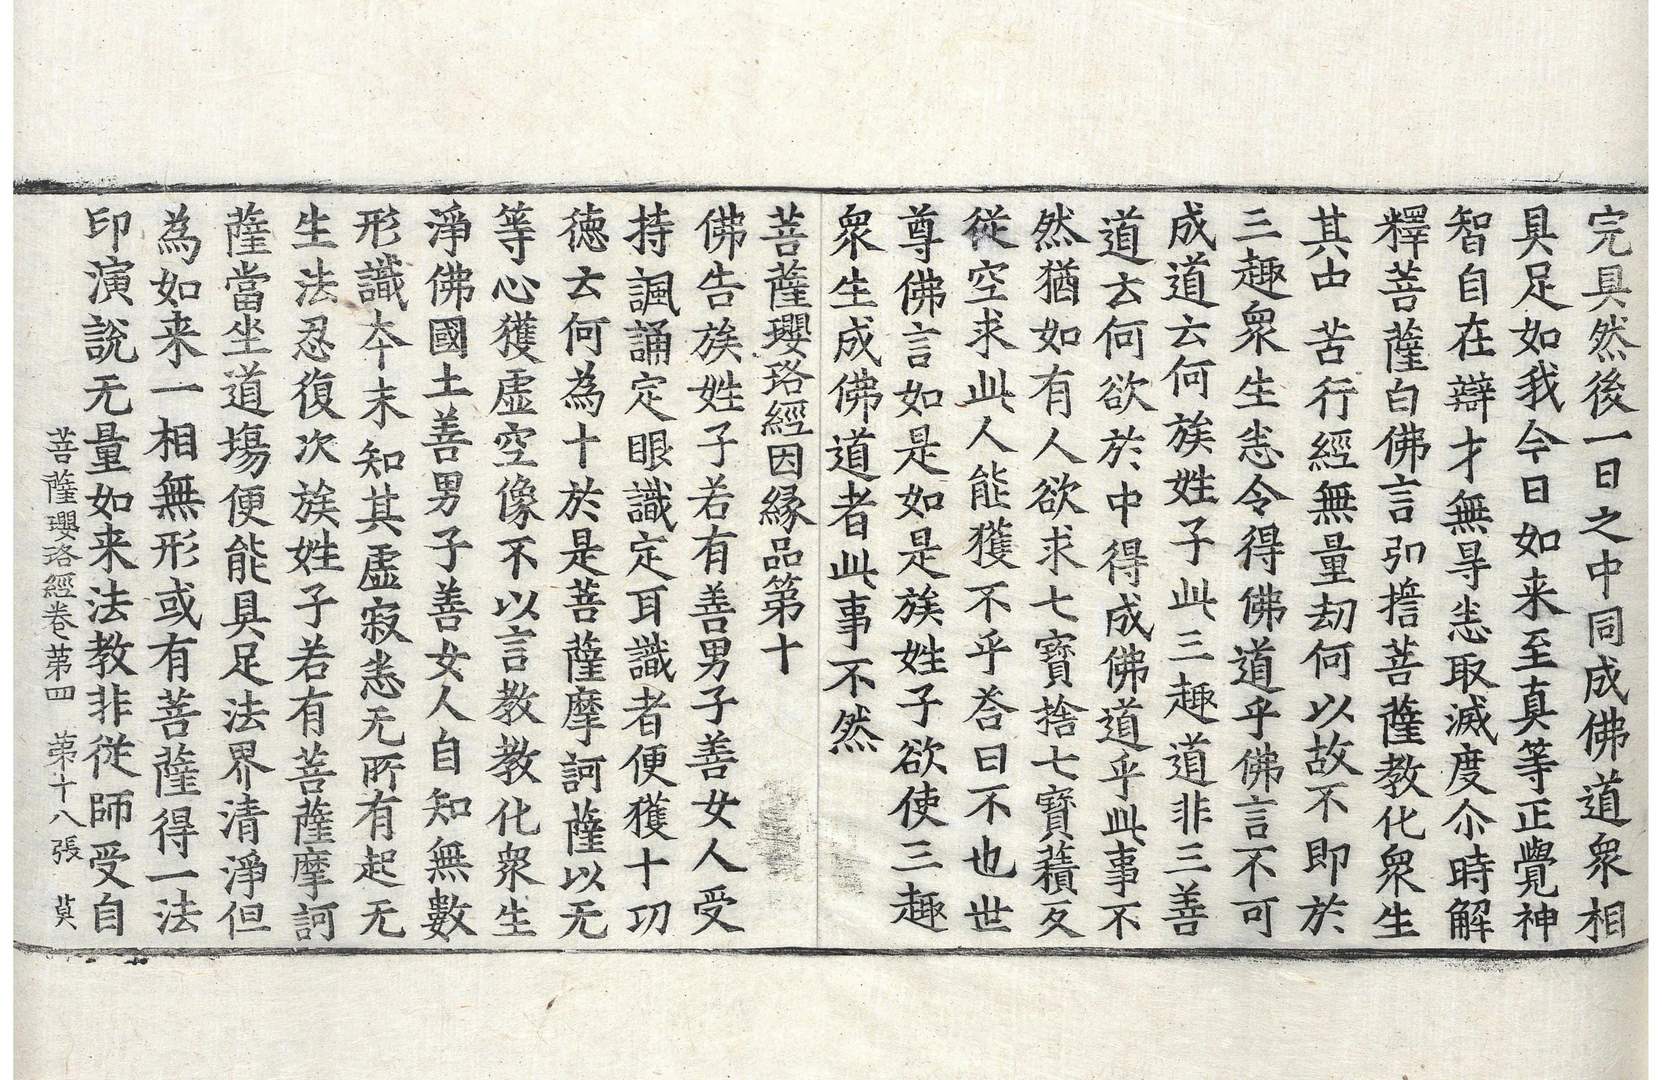 完具然後一日之中同成佛道衆相
具足如我今日如来至真等正覺神
智自在辯才無㝵恚取滅度尒時解
釋菩薩白佛言弘擔菩薩教化衆生
其由苦行經無量劫何以故不即於
三趣衆生恚令得佛道乎佛言不可
成道云何族姓子此三趣道非三善
道云何欲於中得成佛道乎此事不
然猶如有人欲求七寶捨七寶藉反
從空求此人能獲不乎荅曰不也世
尊佛言如是如是族姓子欲使三趣
衆生成佛道者此事不然
菩薩瓔珞經因縁品第十
佛告族姓子若有善男子善女人受
持諷誦定眼識定耳識者便獲十功
德云何為十於是菩薩摩訶薩以无
等心獲虛空像不以言教教化衆生
淨佛國土善男子善女人自知無數
形識夲末知其虛寂恚无所有起无
生法忍復次族姓子若有菩薩摩訶
薩當坐道場便能具足法界清淨但
為如来一相無形或有菩薩得一法
印演說无量如来法教非從師受自
菩薩瓔珞經卷第四 第十八張 莫